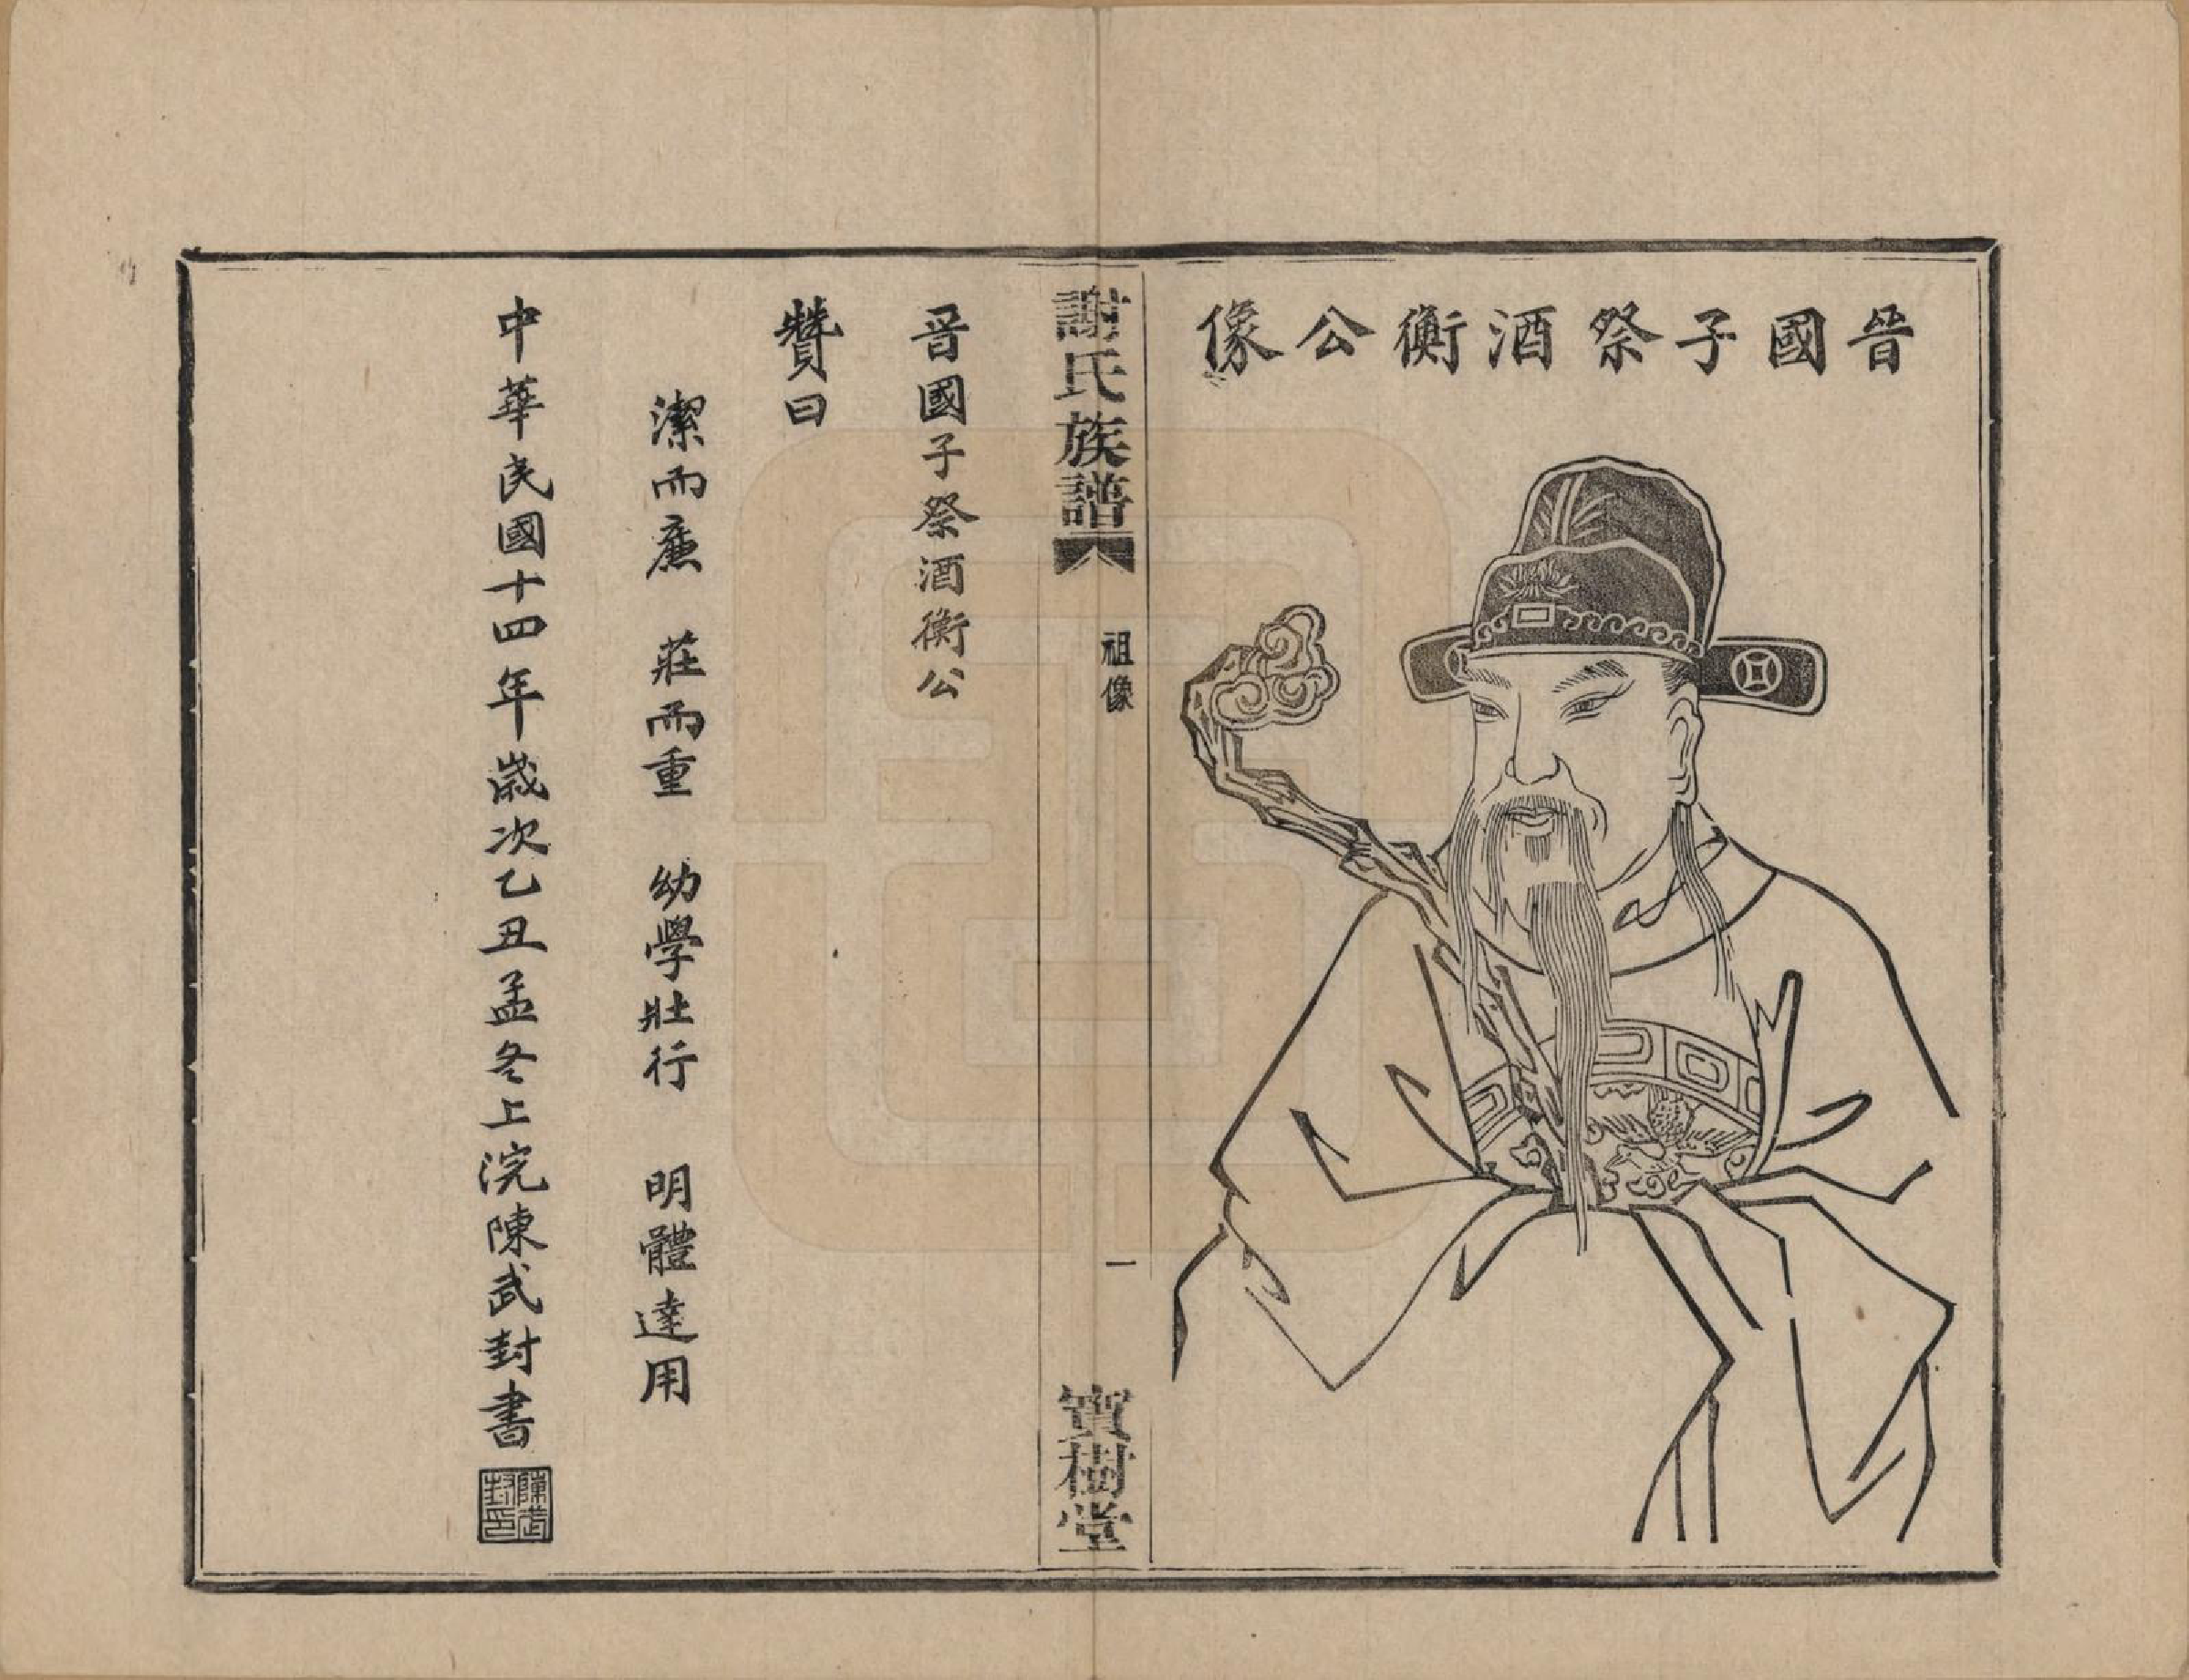 晉國子祭酒衡公像
謝氏族譜
祖像
一
寶樹堂
晉國子祭酒衡公
贊曰
潔而廉 莊而重 幼學壯行 明體達用
中華民國十四年歲次乙丑孟冬上浣陳武封書
陳武封印